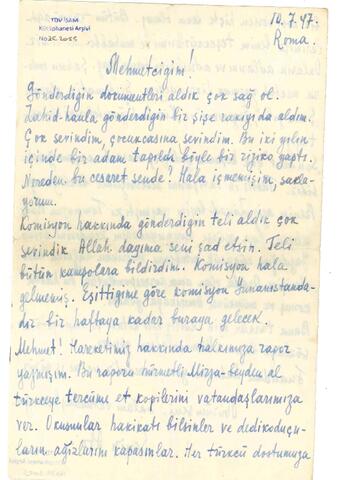 TDV İSAM
Kütüphanesi Arşivi
No 2E.2055
10.7.47.
Roma.
Mehmetciğim!
Gönderdiğin documentleri aldık çok sağ ol.
Zahid-hanla gönderdiğin bir şişe rakıyıda aldım.
Çok sevindim, çocukcasına sevindim. Bu iki yılın
içinde bir adam tapıldı böyle bir riziko yaptı.
Nereden bu cesaret sende? Hala içmemişim, sakla-
yorum.
Komisyon hakkında gönderdiğin teli aldık çok
sevindik Allah dayıma seni şad etsin. Teli
bütün kampolara bildirdim. Komisyon hala
gelmemiş. Eşittiğime göre komisyon Yunanıstanda-
dır bir haftaya kadar buraya gelecek.
Mehmet! Hareketimiz hakkında halkımıza rapor
yazmışım. Bu raporu hürmetli Mirza-beyden al
türkceye tercüme et kopilerini vatandaşlarımıza
ver. Okusunlar hakikatı bilsinler ve dedikoduçu-
ların ağızlarını kapasınlar. Her türkcü dostumuza